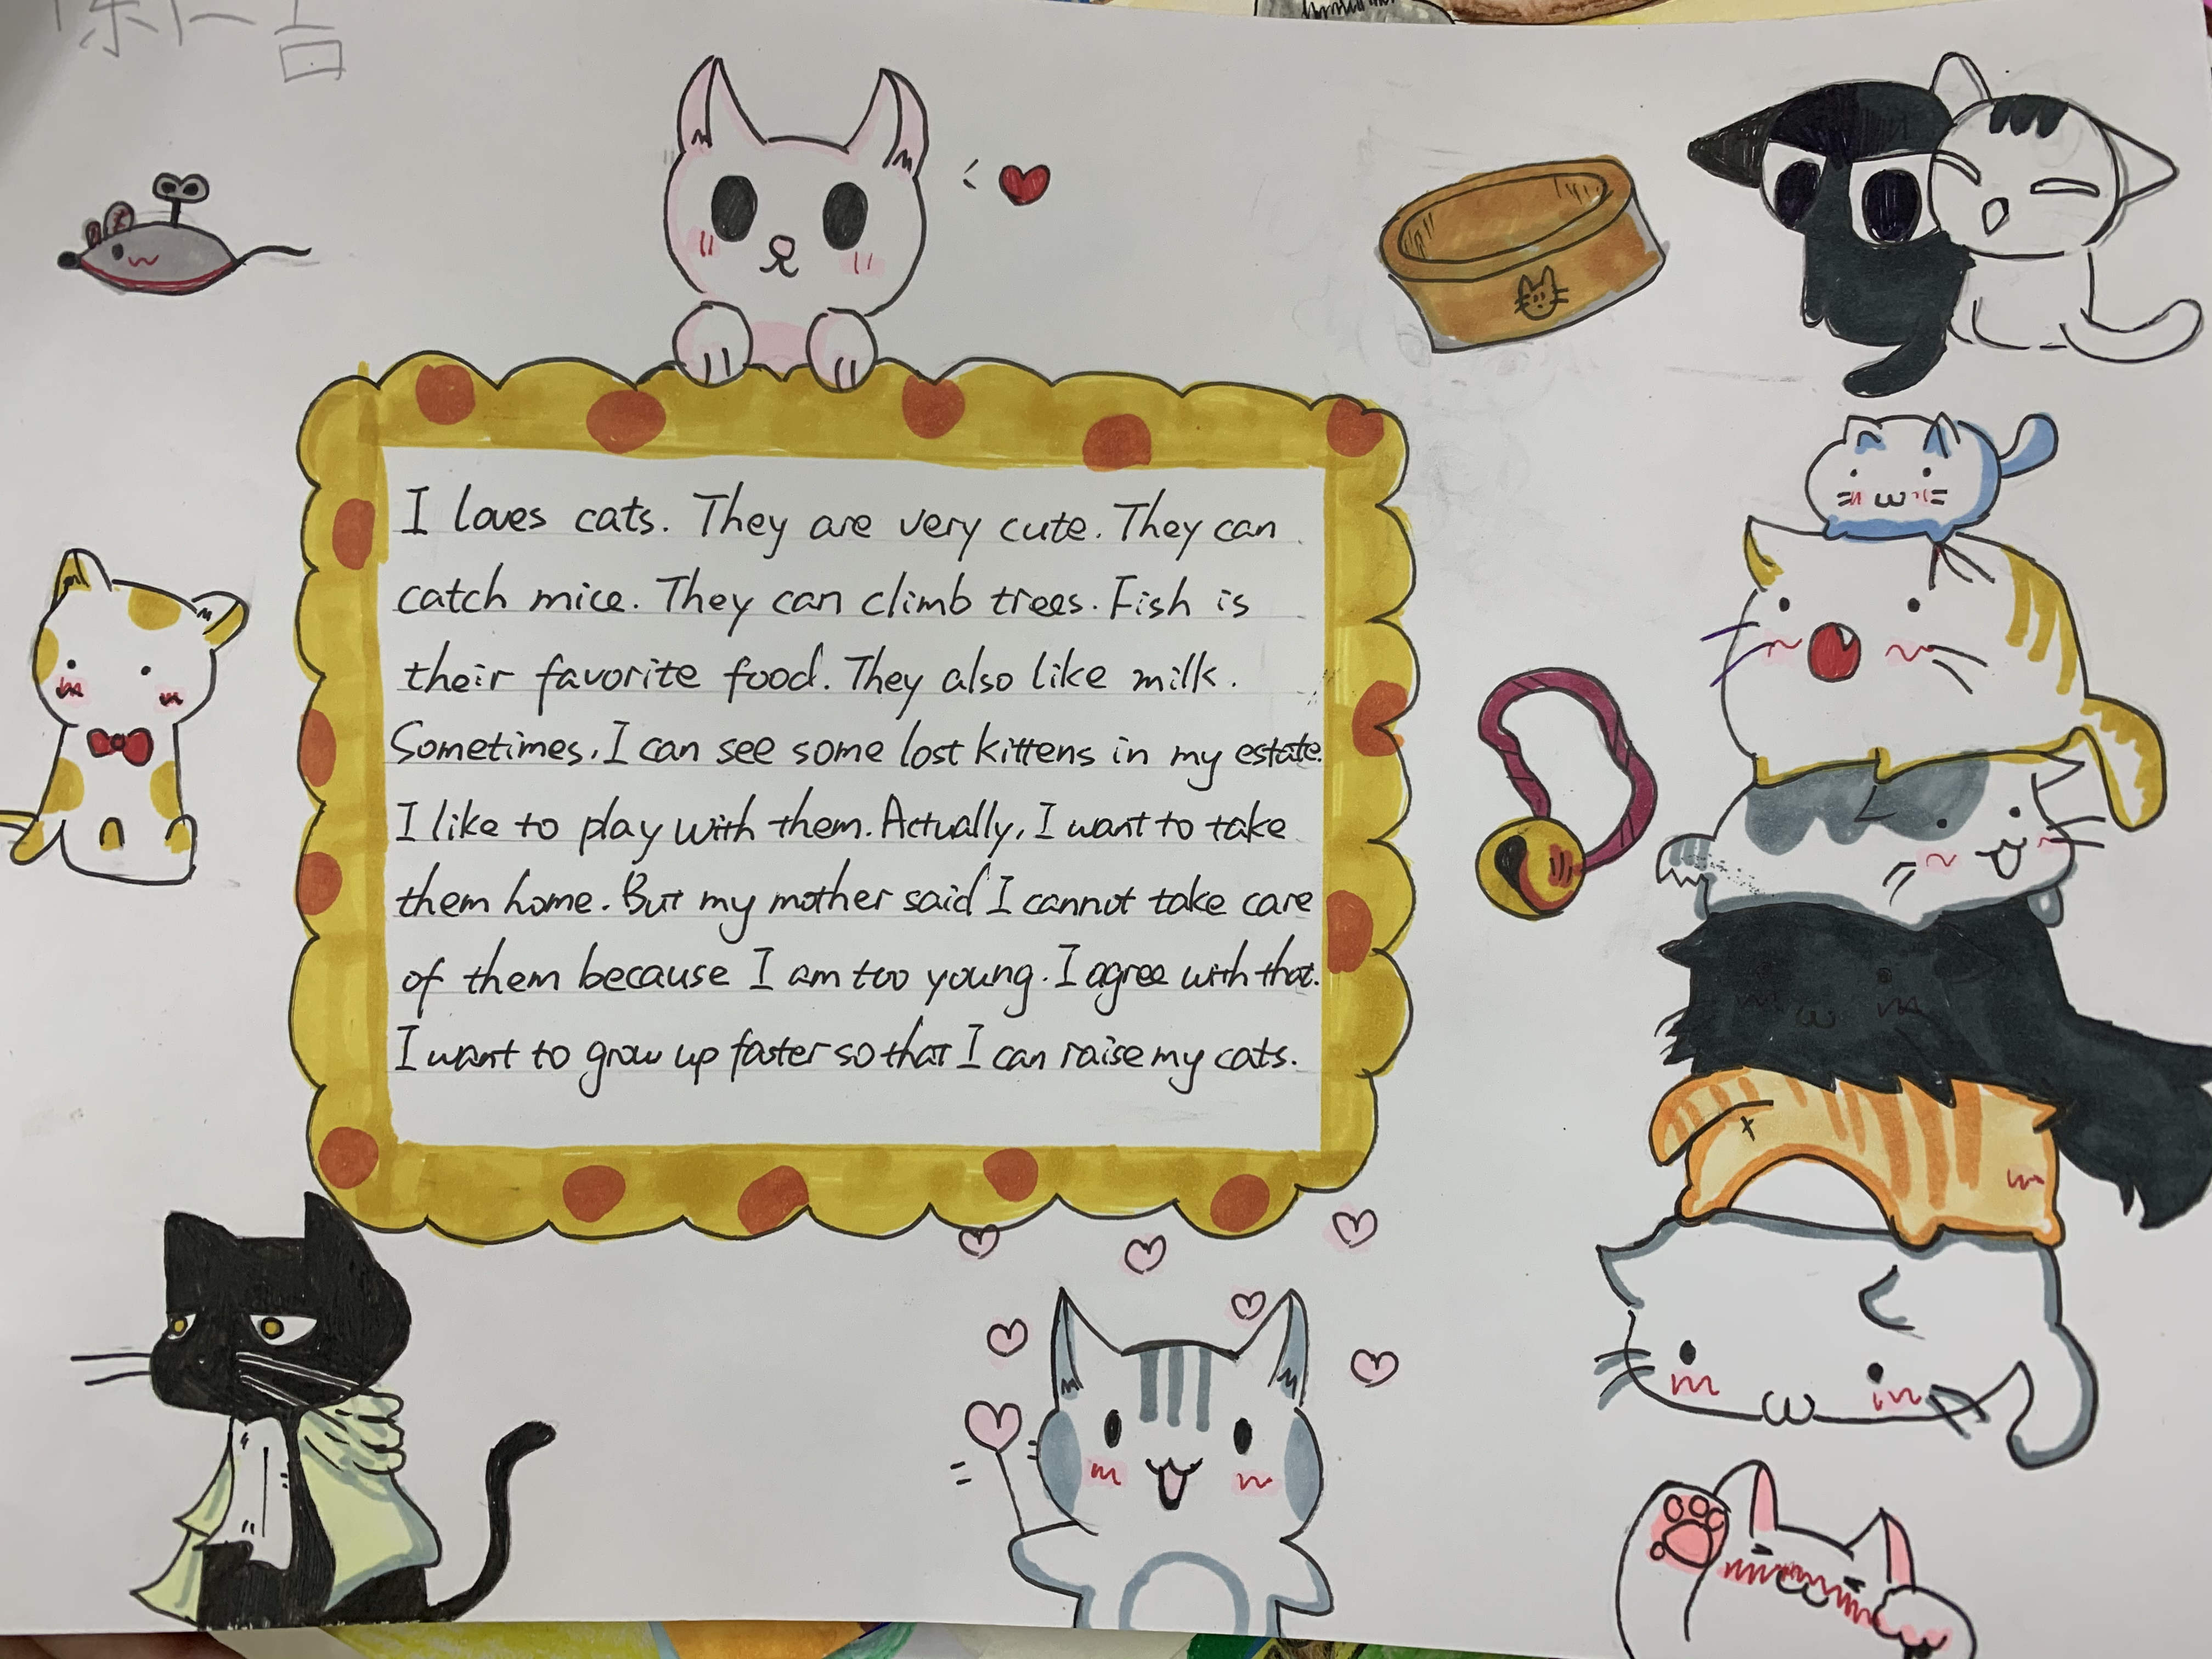 I loves cats. They are very cute. They can
catch mice. They can climb trees. Fish is
their favorite food. They also like milk.
Sometimes, I can see some lost kittens in my estate.
I like to play with them. Actually, I want to take
them home. But my mother said I cannot take care
of them because I am too young. I agree with that.
I want to grow up faster so that I can raise my cats.